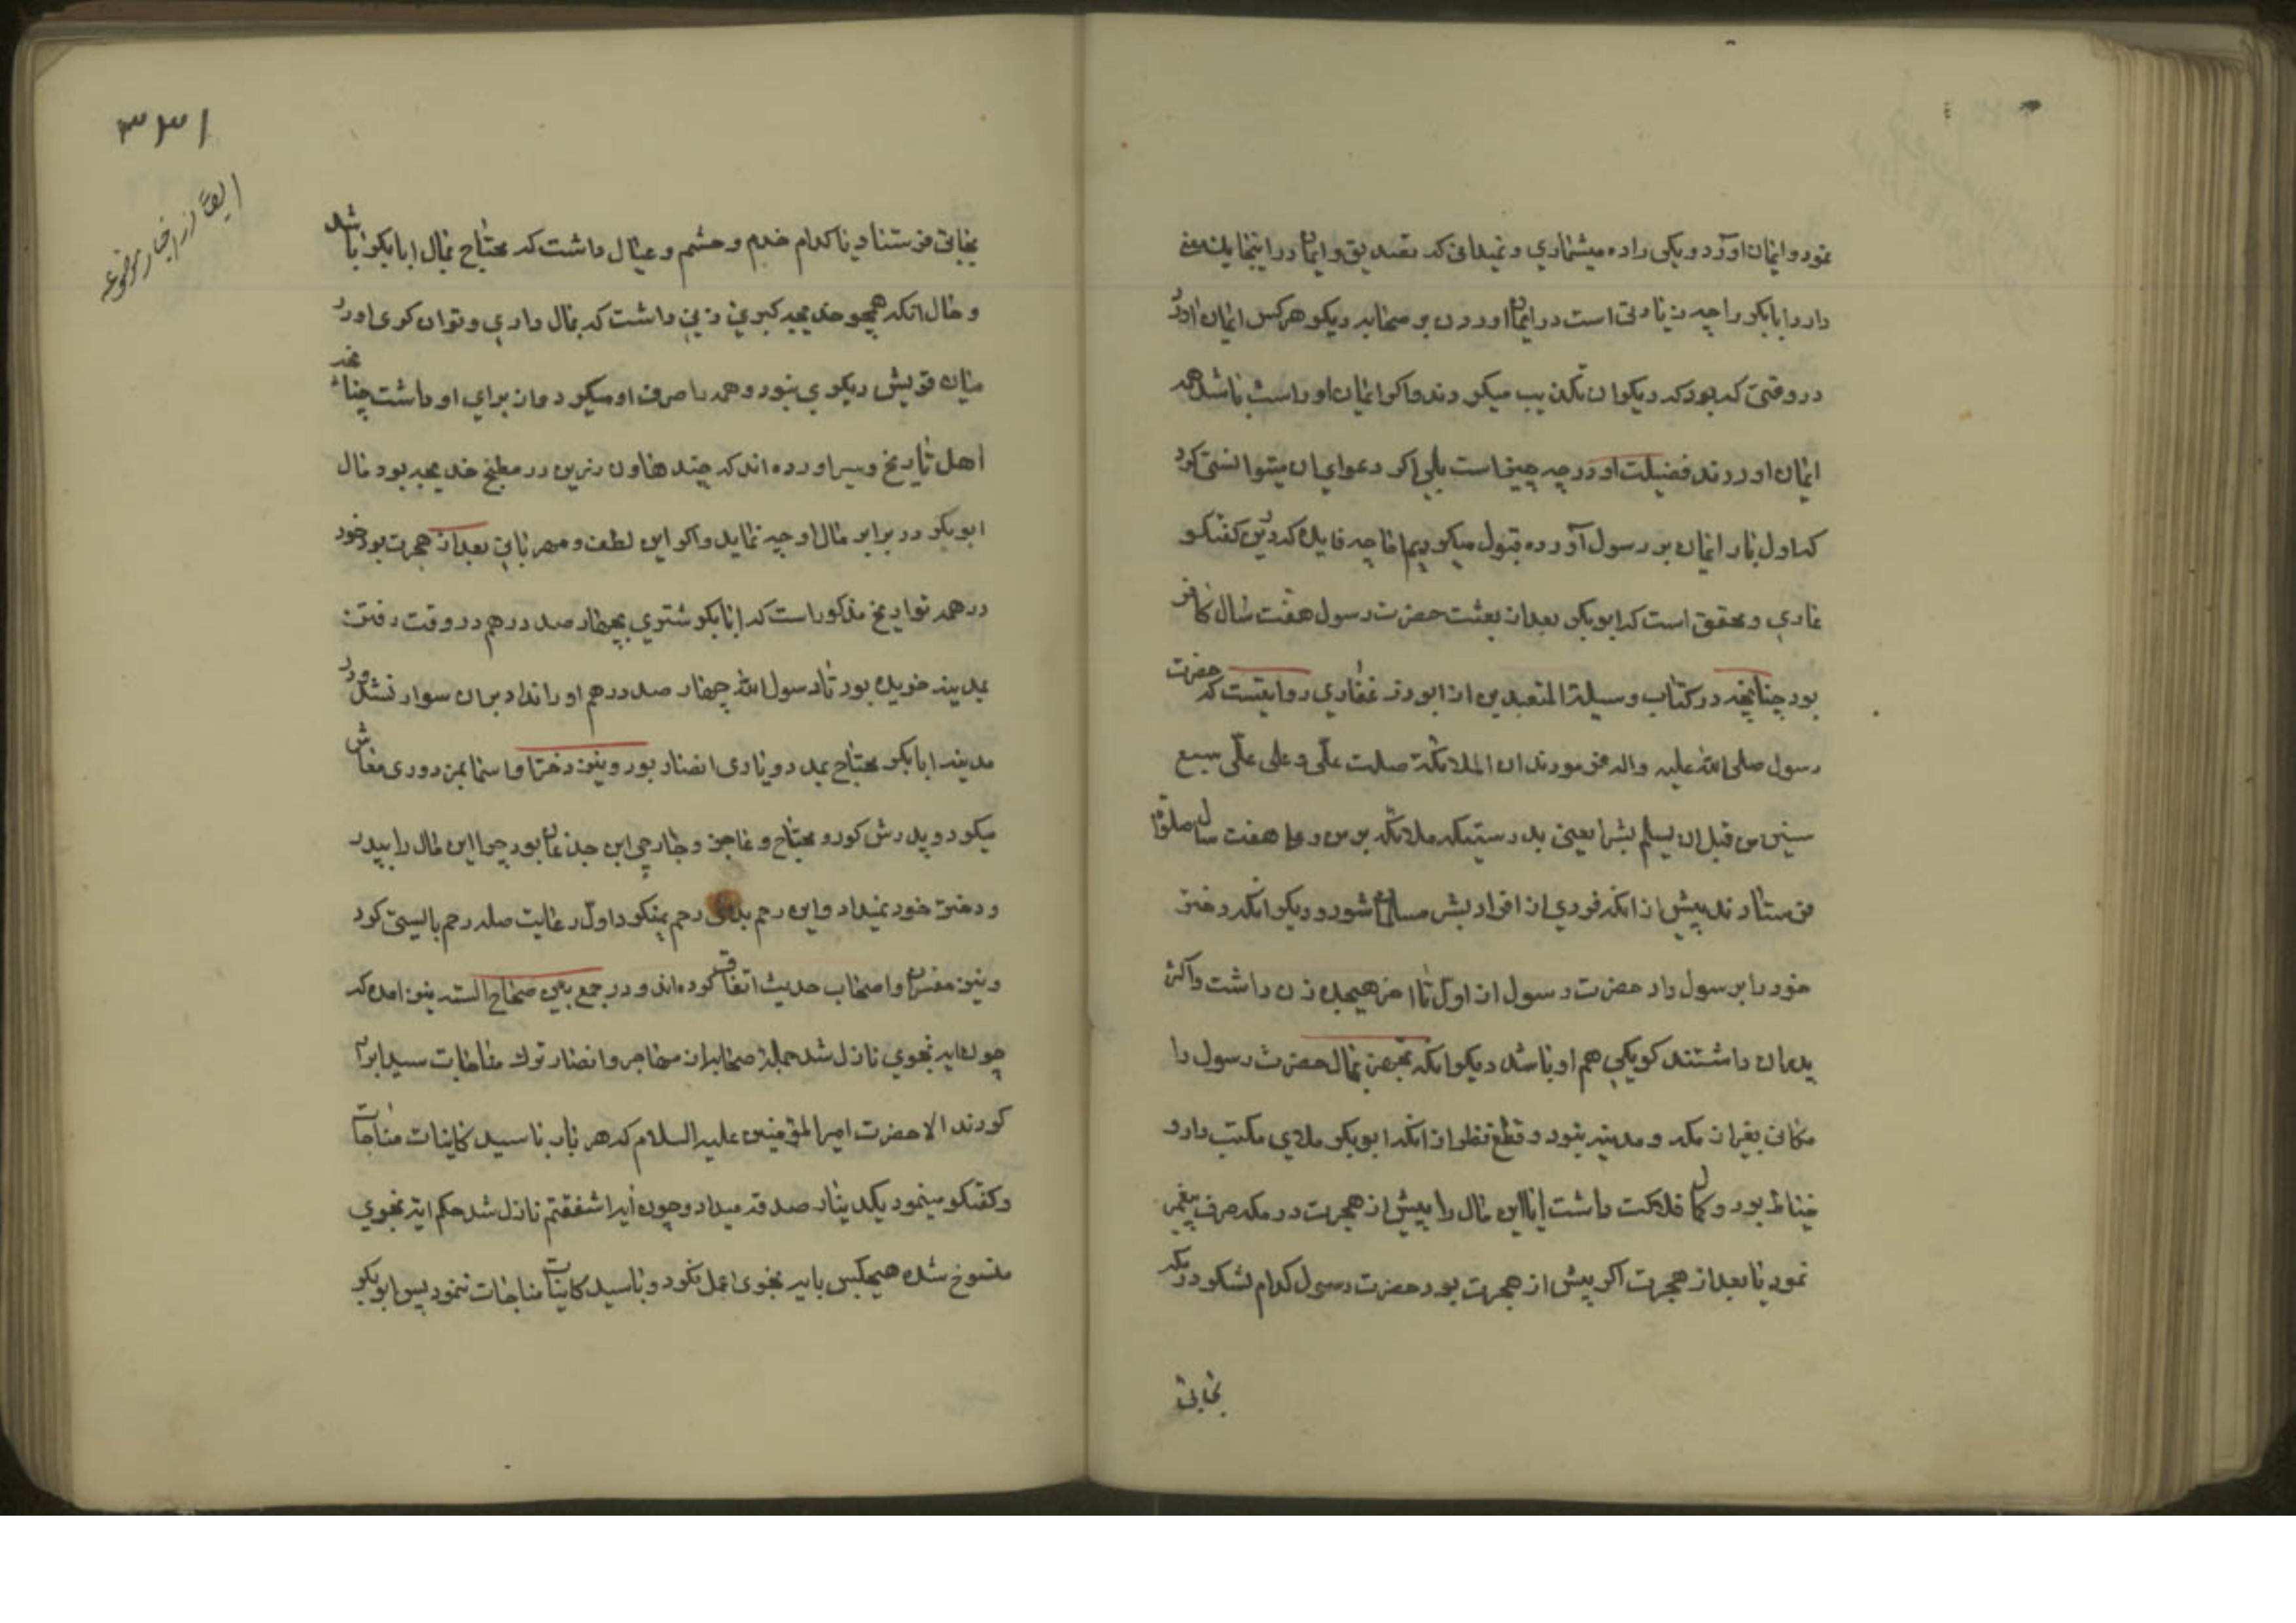 نمود و ایمان آورد و یکی را ده میشماری و نمیدانی که تصدیق و ایمان در اینجا یک معنی
دارد ابابکر را چه زیادتی است در ایمان اوردن بر صحابه دیکر هر کس ایمان اورد
در وقتی که بود که دیکران تکذیب میکردند و اکر ایمان او راست باشد همه
ایمان اوردند فضیلت او در چه چیز است بلی اکر دعوای آن میتوانستی کرد
که اول بار ایمان بر رسول آورده قبول میکردیم اما چه فایده که درین کفتکو
عاری و محقق است که ابوبکر بعد از بعثت حضرت رسول هفت سال کافر
بود چنانچه در کتاب وسیلة المتعبدین از ابوذر غفاری روایتست که حضرت
رسول صلی الله علیه واله فرمودند ان الملائکة صلت علّی و علی علّی سبع
سنین من قبل ان یسلم بشر یعنی بدرستیکه ملائکه بر من و علی هفت سال صلوة
فرستادند پیش از انکه فردی از افراد بشر مسلمان شود و دیکر انکه دختر
خود را بر رسول داد حضرت رسول از اوّل تا اخر هیجده زن داشت و اکثر
پدران داشتند کو یکی هم او باشد دیکر انکه تجهیز بمال حضرت رسول را
مکانی بغیر از مکه و مدینه نبود و قطع نظر از انکه ابوبکر ملای مکتب دار و
خیاط بود و کمال فلاکت داشت ایا این مال را پیش از هجرت در مکه صرف پیغمبر
نمود یا بعد از هجرت اکر پیش از هجرت بود حضرت رسول کدام لشکر در مکه
بجایی
۳۳۱
ایضًا از اخبار موضوعه
بجایی فرستاد یا کدام خدم و حشم و عیال داشت که محتاج بمال ابابکر باشد
و حال انکه همچو خدیجه کبری زنی داشت که بمال داری و توان کری او در
میان قریش دیکری نبود و همه را صرف او میکرد و از برای او داشت چنانچه
اهل تاریخ و سیر اورده اند که چند هاون زرین در مطبخ خدیجه بود مال
ابوبکر در برابر مال او چه نماید و اکر این لطف و مهربانی بعد از هجرت بود خود
در همه تواریخ مذکور است که ابابکر شتری بچهار صد درهم در وقت رفتن
بمدینه خریده بود تا رسول الله چهار صد درهم او را نداد بر ان سوار نشد و در
مدینه ابابکر محتاج بمدد و یاری انصار بود و نیز دختر او اسما بمزدوری معاش
میکرد و پدرش کور و محتاج و عاجز و جارچی ابن جذعان بود چرا این مال را بپدر
و دختر خود نمیداد و این رحم بدان رحم نمیکرد اوّل رعایت صله رحم بایستی کرد
و نیز مفسران و اصحاب حدیث اتفاق کرده اند و در جمع بین صحاح السته نیز امده که
چون ایه نجوی نازل شد جملهٔ صحابه از مهاجر و انصار ترک مناجات سید ابرار
کردند الا حضرت امیر المؤمنین علیه السلام که هر بار با سید کاینات مناجات
و کفتکو مینمود یکدینار صدقه میداد و چون آیه اشفقتم نازل شد حکم ایه نجوی
منسوخ شده هیچکس بایه نجوی عمل نکرد و با سید کاینات مناجات ننمود پس ابوبکر